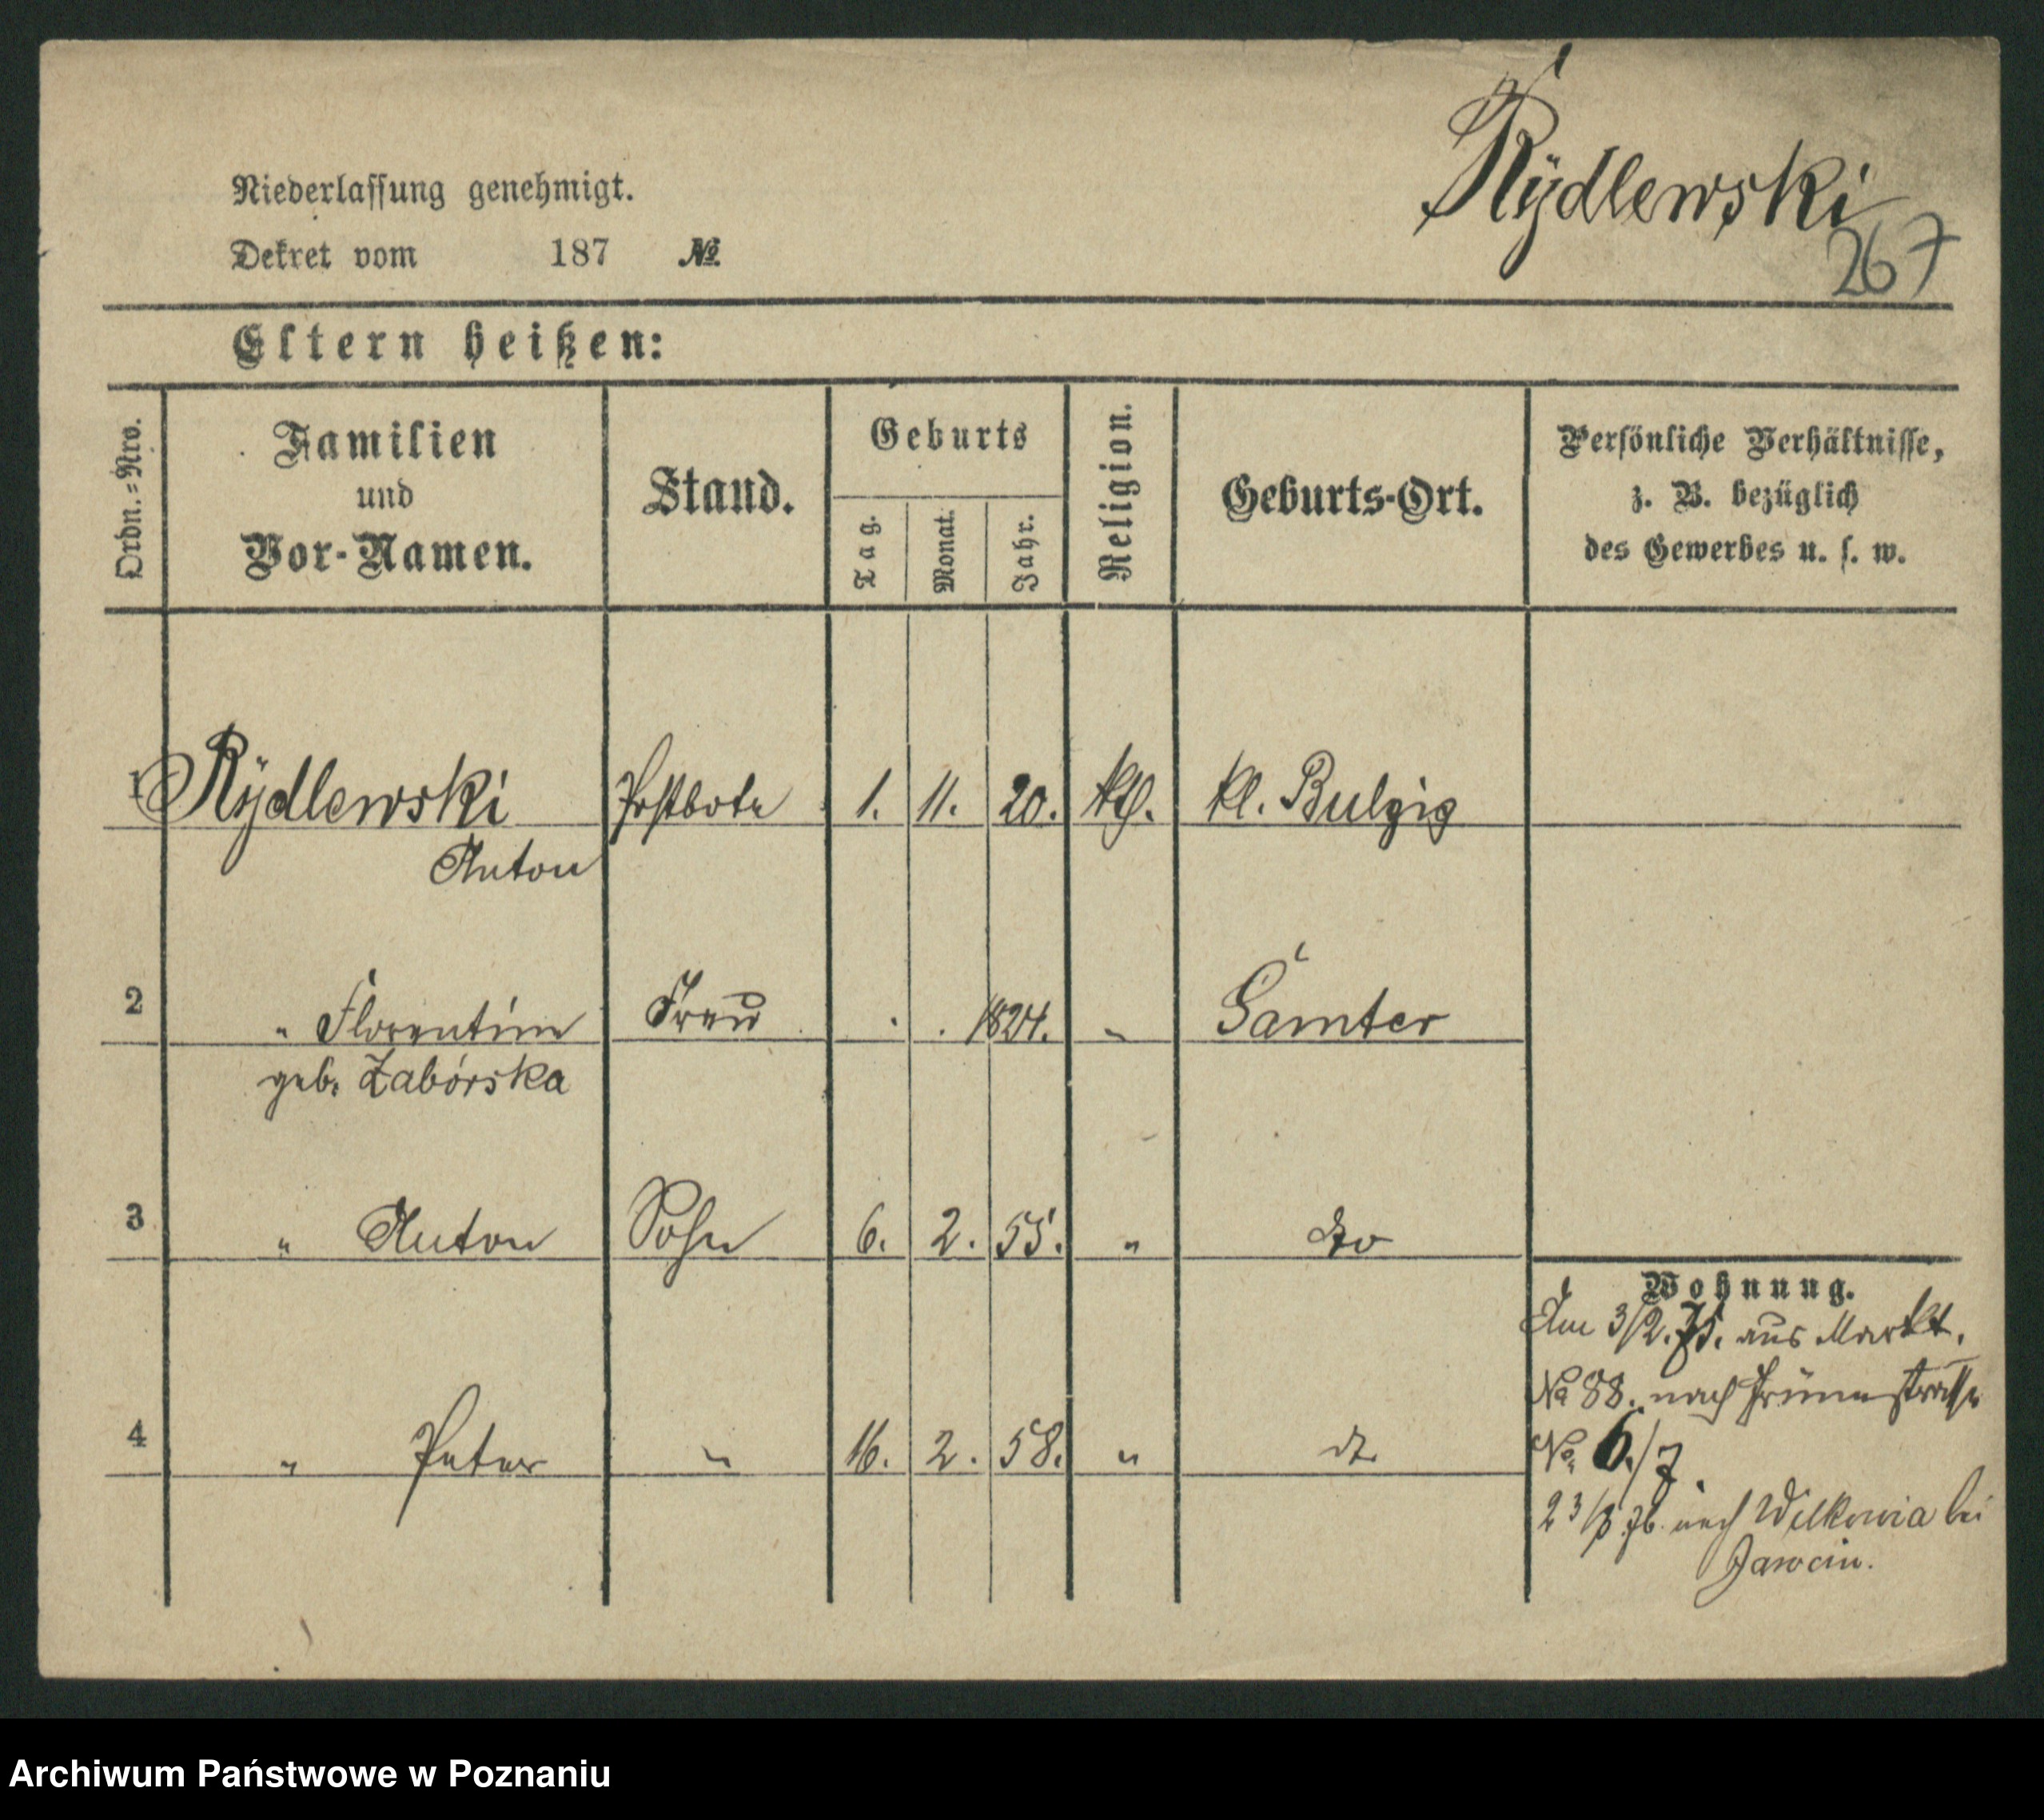 Rÿdlewski
267
Niederlassung genehmigt.
Dekret vom 187 №
Eltern heißen:
Ordn.=Nro.
Familien
und
Vor-Namen.
Stand.
Geburts
Tag.
Monat.
Jahr.
Religion.
Geburts-Ort.
Persönliche Verhältnisse,
z. B. bezüglich
des Gewerbes u. s. w.
1 Rÿdlewski Postbote 1. 11. 20. kth. kl. Bulzig
Anton
2 " Florentine Frau . . 1824. " Samter
geb. Zabórska
3 " Anton Sohn 6. 2. 55. " do
4 " Peter " 16. 2. 58. " do
Wohnung.
Am 3/2. 75. aus Markt.
No 88. nach
No. 6./7.
23/8 76. nach Wilkowia bei
Jarocin.
Archiwum Państwowe w Poznaniu